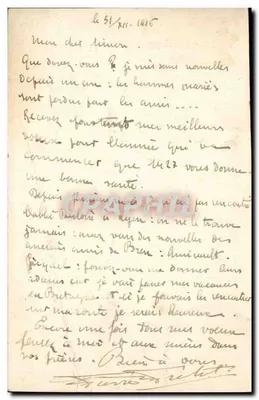 le 31/XII - 1926
Mon cher Simon.
Que devez-vous ? Je suis sans nouvelles
depuis un an : les hommes mariés
sont perdus pour les amis ....
Recevez mes meilleurs
voeux pour l'année qui va
commencer que 1927 vous donne
une bonne santé.
Depuis pas rencontré
l'abbé à Lyon : on ne le trouve
jamais : avez-vous des nouvelles des
anciens amis de
pouvez-vous me donner leurs
adresses car je vais passer mes vacances
en Bretagne et si je pouvais les rencontrer
sur ma route je serais heureux.
Encore une fois tous mes voeux
et aux miens dans
vos prières. Bien à vous